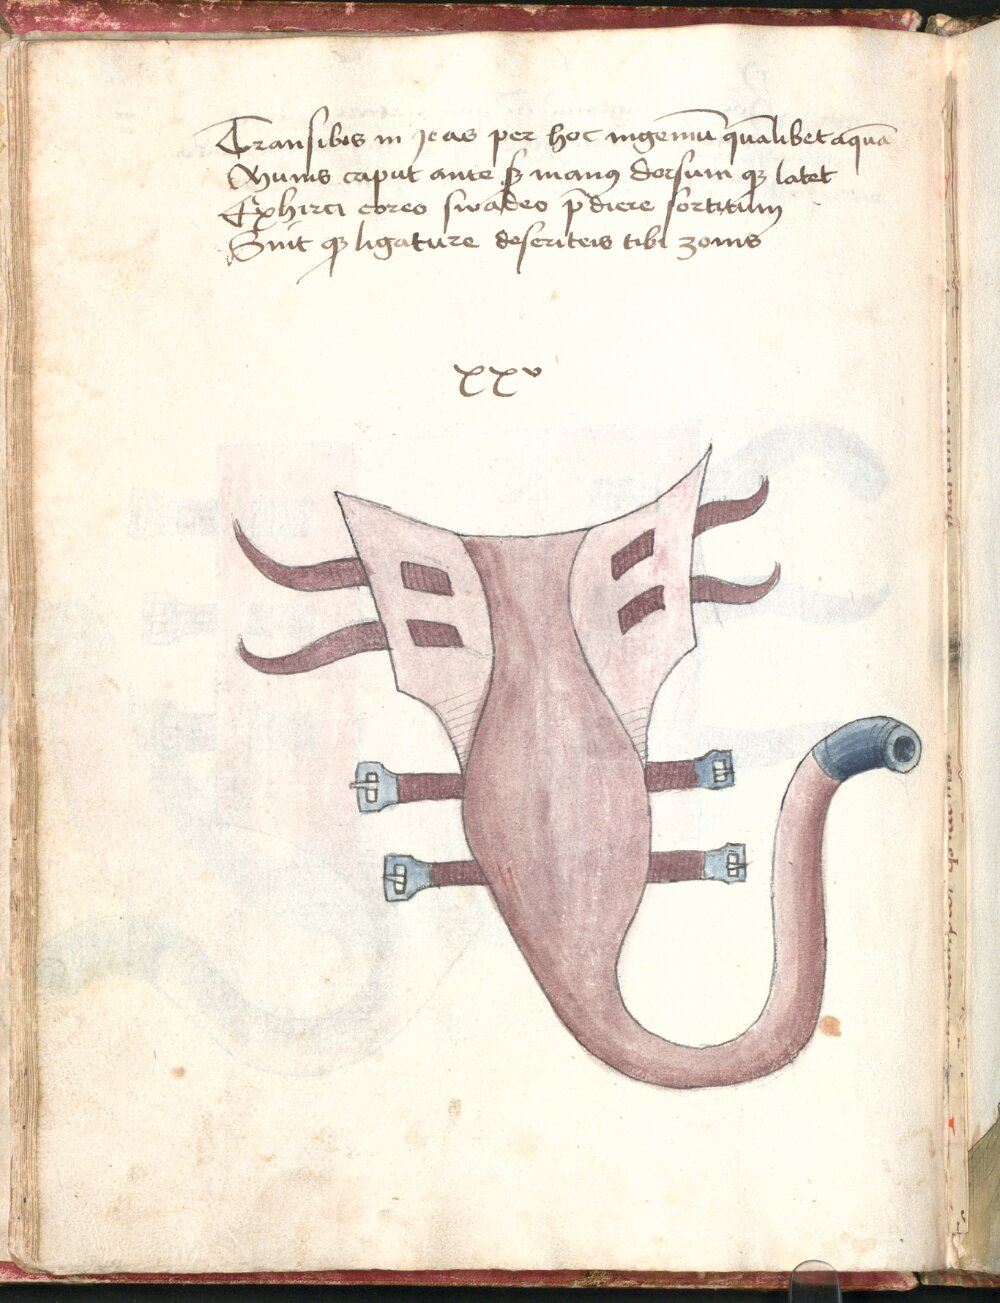 Transibis in Icas per hoc ingeniū qualibet aquā
Munis caput ante sz manus dorsum qz latet
Ex hirci coreo swadeo p̄diere fortitum
Sint qz ligature descriteis tibi zonis
xxv